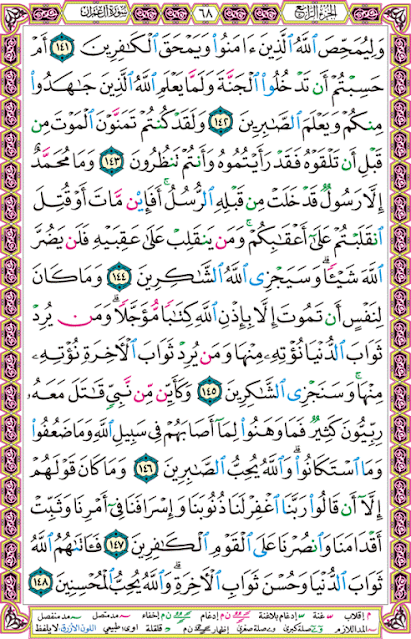 الجزء الرابع ٦٨ سورة آل عمران
وَلِيُمَحِّصَ ٱللَّهُ ٱلَّذِينَ ءَامَنُوا۟ وَيَمْحَقَ ٱلْكَٰفِرِينَ ١٤١ أَمْ
حَسِبْتُمْ أَن تَدْخُلُوا۟ ٱلْجَنَّةَ وَلَمَّا يَعْلَمِ ٱللَّهُ ٱلَّذِينَ جَٰهَدُوا۟
مِنكُمْ وَيَعْلَمَ ٱلصَّٰبِرِينَ ١٤٢ وَلَقَدْ كُنتُمْ تَمَنَّوْنَ ٱلْمَوْتَ مِن
قَبْلِ أَن تَلْقَوْهُ فَقَدْ رَأَيْتُمُوهُ وَأَنتُمْ تَنظُرُونَ ١٤٣ وَمَا مُحَمَّدٌ
إِلَّا رَسُولٌ قَدْ خَلَتْ مِن قَبْلِهِ ٱلرُّسُلُ ۚ أَفَإِي۟ن مَّاتَ أَوْ قُتِلَ
ٱنقَلَبْتُمْ عَلَىٰٓ أَعْقَٰبِكُمْ ۚ وَمَن يَنقَلِبْ عَلَىٰ عَقِبَيْهِ فَلَن يَضُرَّ
ٱللَّهَ شَيْـًٔا ۗ وَسَيَجْزِى ٱللَّهُ ٱلشَّٰكِرِينَ ١٤٤ وَمَا كَانَ
لِنَفْسٍ أَن تَمُوتَ إِلَّا بِإِذْنِ ٱللَّهِ كِتَٰبًا مُّؤَجَّلًا ۗ وَمَن يُرِدْ
ثَوَابَ ٱلدُّنْيَا نُؤْتِهِۦ مِنْهَا وَمَن يُرِدْ ثَوَابَ ٱلْءَاخِرَةِ نُؤْتِهِۦ
مِنْهَا ۚ وَسَنَجْزِى ٱلشَّٰكِرِينَ ١٤٥ وَكَأَيِّن مِّن نَّبِىٍّ قَٰتَلَ مَعَهُۥ
رِبِّيُّونَ كَثِيرٌ فَمَا وَهَنُوا۟ لِمَآ أَصَابَهُمْ فِى سَبِيلِ ٱللَّهِ وَمَا ضَعُفُوا۟
وَمَا ٱسْتَكَانُوا۟ ۗ وَٱللَّهُ يُحِبُّ ٱلصَّٰبِرِينَ ١٤٦ وَمَا كَانَ قَوْلَهُمْ
إِلَّآ أَن قَالُوا۟ رَبَّنَا ٱغْفِرْ لَنَا ذُنُوبَنَا وَإِسْرَافَنَا فِىٓ أَمْرِنَا وَثَبِّتْ
أَقْدَامَنَا وَٱنصُرْنَا عَلَى ٱلْقَوْمِ ٱلْكَٰفِرِينَ ١٤٧ فَـَٔاتَىٰهُمُ ٱللَّهُ
ثَوَابَ ٱلدُّنْيَا وَحُسْنَ ثَوَابِ ٱلْءَاخِرَةِ ۗ وَٱللَّهُ يُحِبُّ ٱلْمُحْسِنِينَ ١٤٨